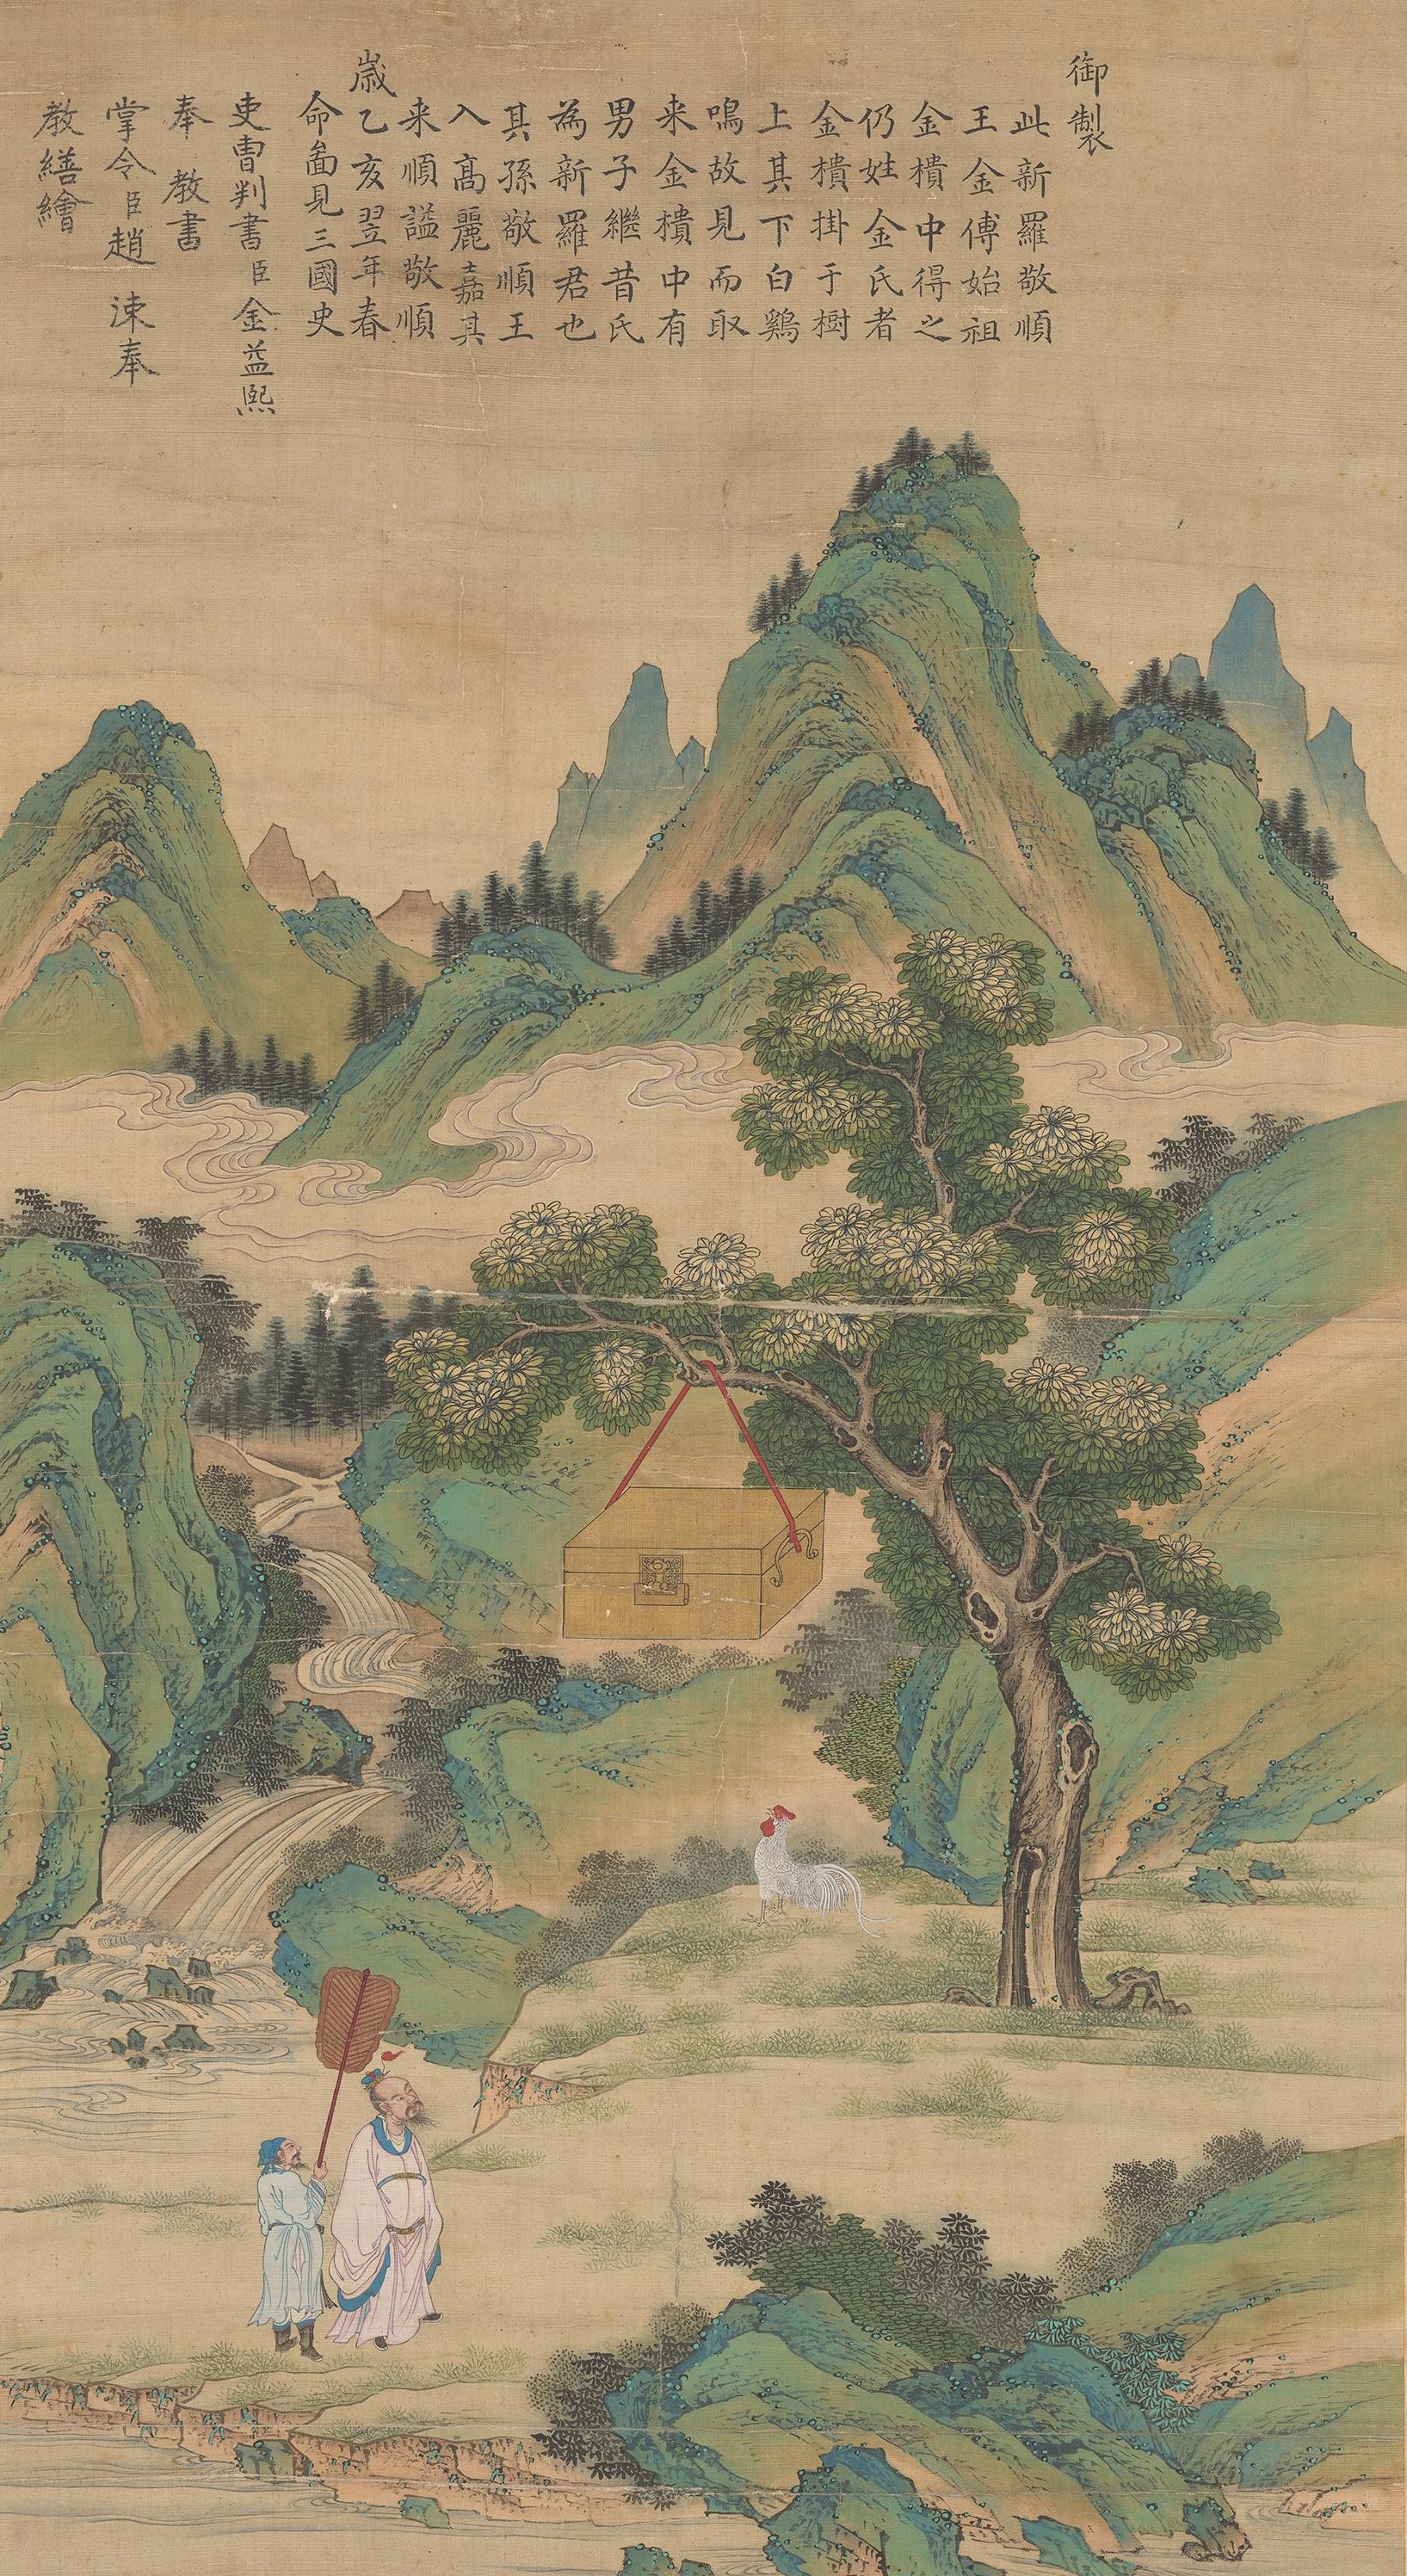 御製
此新羅敬順
王金傅始祖
金樻中得之
仍姓金氏者
金樻掛于樹
上其下白鷄
鳴故見而取
来金樻中有
男子繼昔氏
為新羅君也
其孫敬順王
入高麗嘉其
来順謚敬順
歲乙亥翌年春
命啚見三國史
吏曹判書臣金益熙
奉 教書
掌令臣趙 涑奉
教繕繪